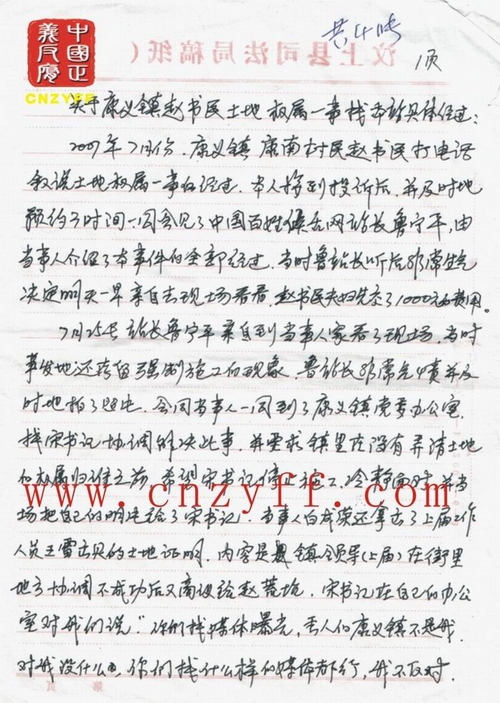 中國正
義反腐
CNZYFF
共4张
1页
汶上县司法局稿纸（
关于康义镇赵书民土地权属一事找本站具体经过:
2007年7月份.康义镇康南村民赵书民打电话
叙说土地权属一事的经过.本人接到投诉后.并及时地
预约了时间一同会见了中国百姓网站长鲁宁平,由
当事人介绍了本事件的全部经过.当时鲁站长听后非常生气
决定明天一早亲自去现场看看.赵书民夫妇先交了1000元的费用。
7月25号站长鲁宁平亲自到当事人家看了现场.当时
事发地还存留强制施工的现象.鲁站长非常气愤并及
时地拍了照片.会同当事人一同到了康义镇党委办公室
找宋书记协调解决此事.并要求镇里在没有弄清土地
的权属归谁之前.希望宋书记停止施工.冷静面对.并当
场把自己的名片给了宋书记.当事人白成荣还拿出了上届工作
www.cnzyff.com
人员王雷出具的土地证明.内容是镇领导(上届)在街里
地方协调不成功后又商议给赵荒地.宋书记在自己的办公
室对我们说"你们找媒体曝光,丢人的康义镇不是我.
对我没什么,你们找什么样的媒体都行,我不反对.